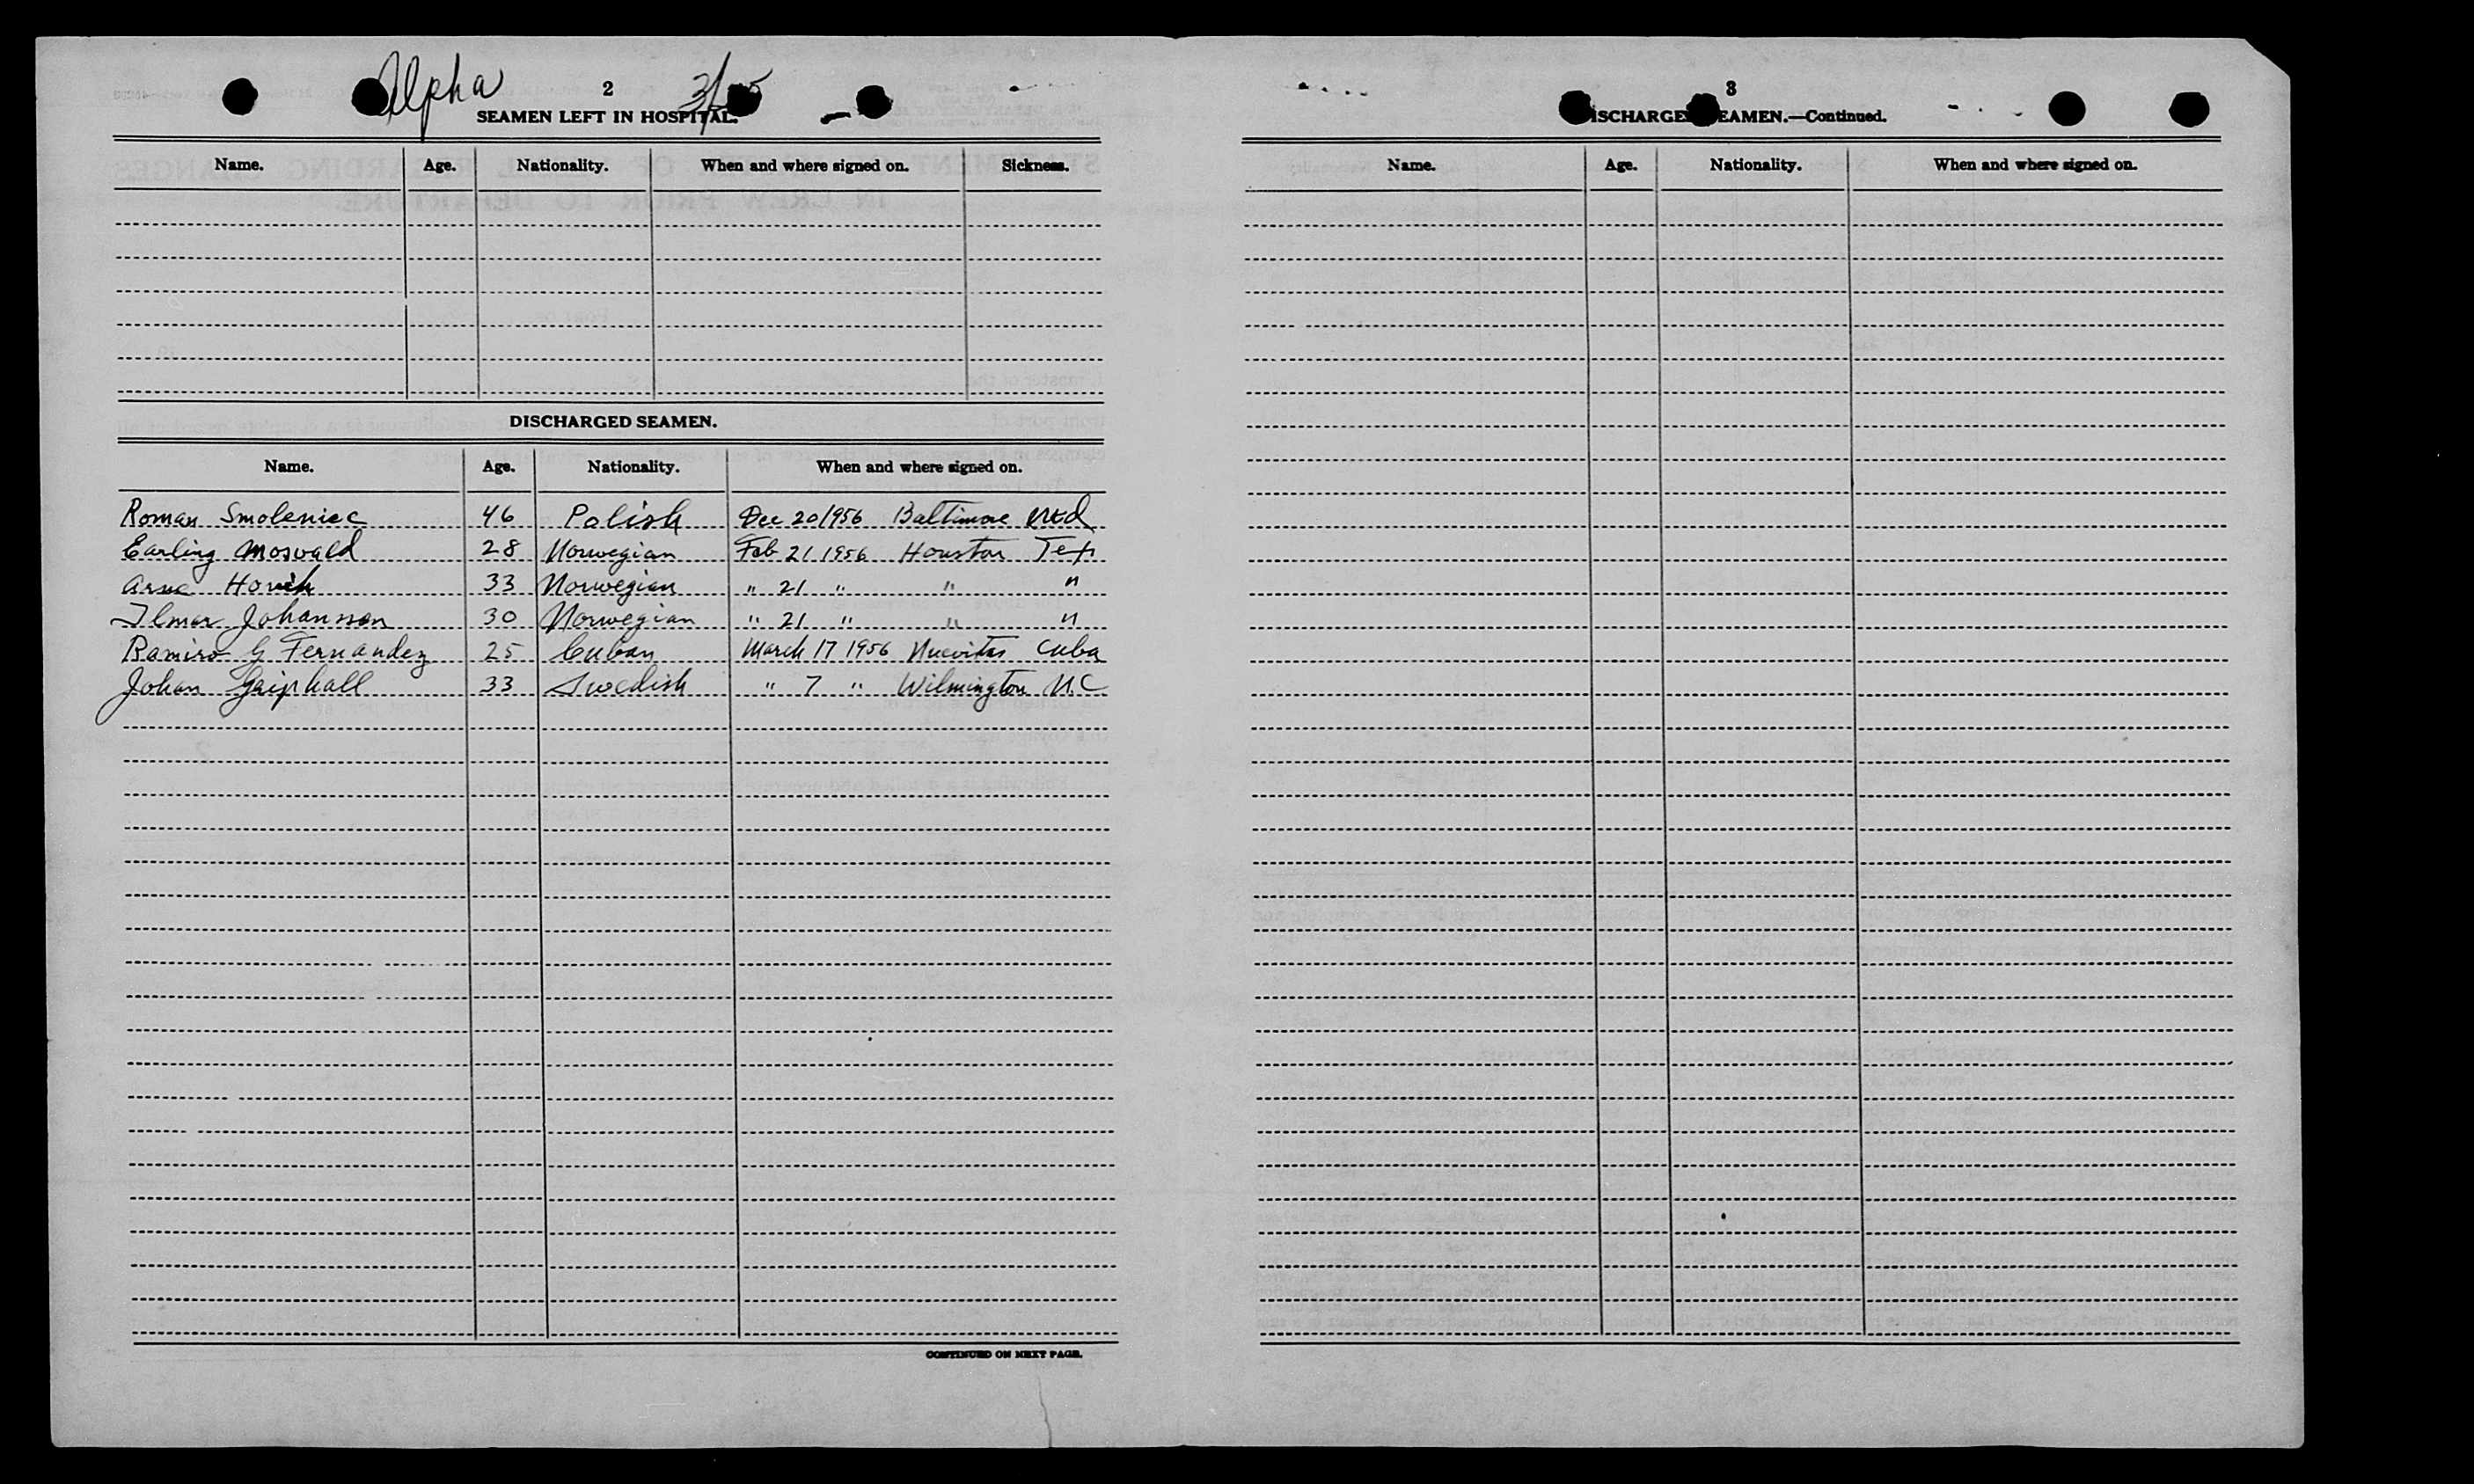 Alpha 2
SEAMEN LEFT IN HOSPITAL.
Name. Age. Nationality. When and where signed on. Sickness.
DISCHARGED SEAMEN.
Name. Age. Nationality. When and where signed on.
Roman Smoleniec 46 Polish Dec 20/956 Baltimore Md
Earling Moswald 28 Norwegian Feb 21 1956 Houston Tex
Arne 33 Norwegian " 21 " " "
Ilmar Johansson 30 Norwegian " 21 " " "
Ramiro G Fernandez 25 Cuban March 17 1956 Nuevitas Cuba
Johan 33 Swedish " 7 " Wilmington N.C
CONTINUED ON NEXT PAGE.
3
DISCHARGED SEAMEN.—Continued.
Name. Age. Nationality. When and where signed on.